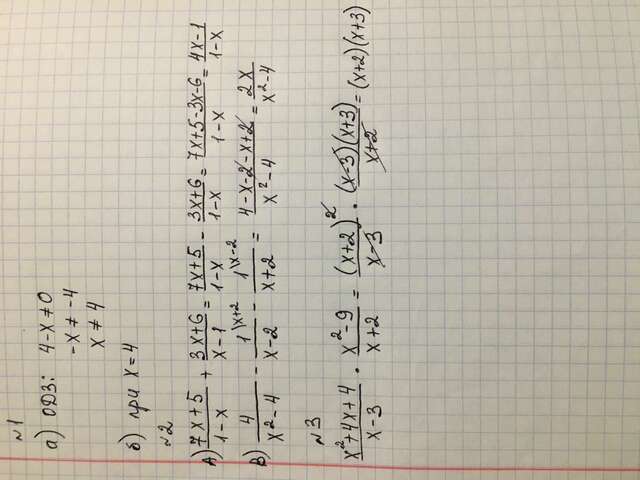 №1
а) ОДЗ: 4-x≠0
-x≠-4
x≠4
б) при x=4
№2
А) (7x+5)/(1-x) + (3x+6)/(x-1) = (7x+5)/(1-x) - (3x+6)/(1-x) = (7x+5-3x-6)/(1-x) = (4x-1)/(1-x)
В) 4/(x²-4) - 1\x+2/(x-2) - 1\x-2/(x+2) = (4-x-2-x+2)/(x²-4) = 2x/(x²-4)
№3
(x²+4x+4)/(x-3) · (x²-9)/(x+2) = (x+2)²/(x-3) · (x-3)(x+3)/(x+2) = (x+2)(x+3)